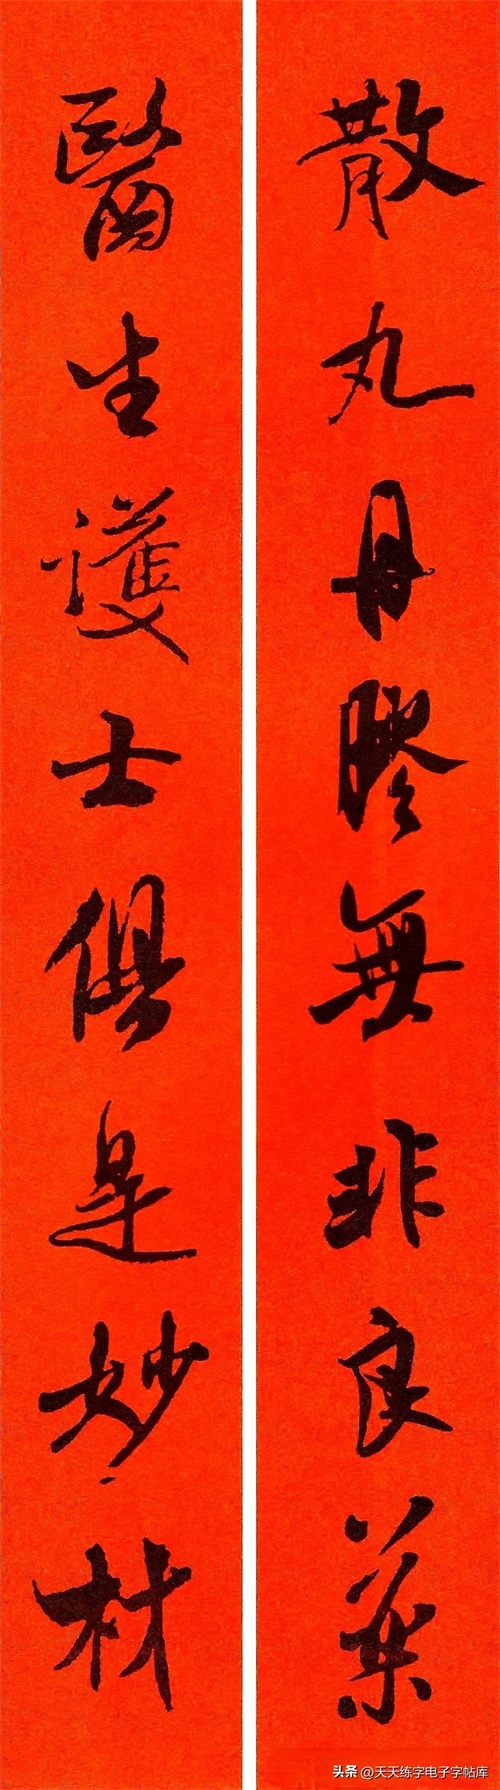 散丸丹膠無非良藥
醫生護士俱是妙材
头条 @天天练字电子字帖库